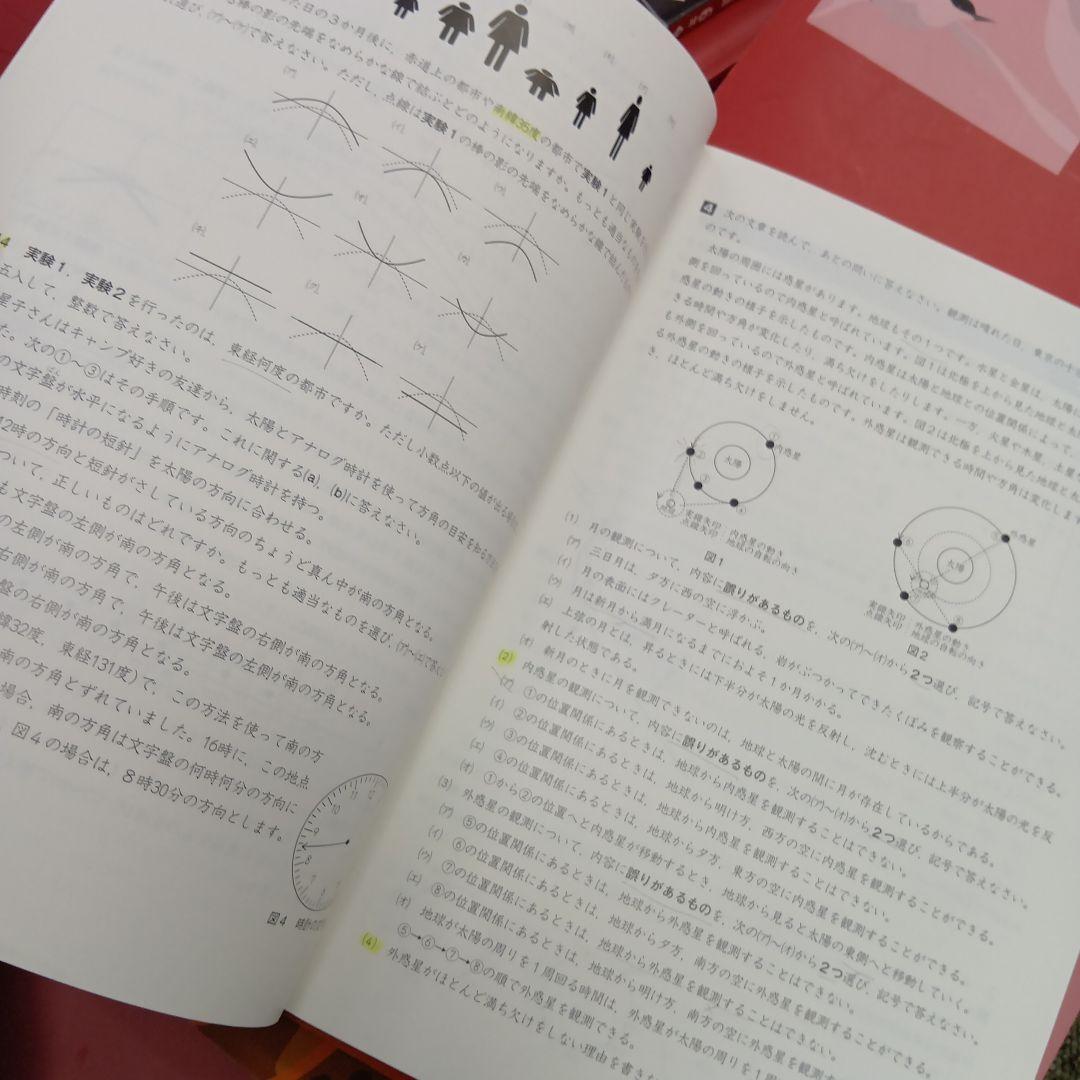 た日の3か月後に，赤道上の都市や南緯35度の都市で実験1と同じ実験を
る棒の影の先端をなめらかな線で結ぶとどのようになりますか。もっとも適当なもの
選び，(ア)～(ケ)で答えなさい。ただし，点線は実験1の棒の影の先端をなめらかな線で結んだ
実験1，実験2を行ったのは，東経何度の都市ですか。ただし小数点以下の値が出る
五入して，整数で答えなさい。
星子さんはキャンプ好きの友達から，太陽とアナログ時計を使って方角の目安を知る
た。次の①～③はその手順です。これに関する(a)，(b)に答えなさい。
の文字盤が水平になるようにアナログ時計を持つ。
時刻の「時計の短針」を太陽の方向に合わせる。
12時の方向と短針がさしている方向のちょうど真ん中が南の方角となる。
ついて，正しいものはどれですか。もっとも適当なものを選び，(ア)～(エ)で答え
も文字盤の左側が南の方角となる。
の左側が南の方角で，午後は文字盤の右側が南の方角となる。
右側が南の方角で，午後は文字盤の左側が南の方角となる。
盤の右側が南の方角となる。
緯32度，東経131度)で，この方法を使って南の方
南の方角とずれていました。16時に，この地点
場合，南の方角は文字盤の何時何分の方向に
図4の場合は，8時30分の方向とします。
図4
4 次の文章を読んで，あとの問いに答えなさい。観測は晴れた日，東京の
のです。
太陽の周囲には惑星があります。地球もその1つです。水星と金星は，太陽に
側を回っているので内惑星と呼ばれています。図1は北極を上から見た地球と太
惑星の動きの様子を示したものです。内惑星は太陽と地球との位置関係によって，
きる時間や方角が変化したり，満ち欠けをしたりします。一方，火星や木星，土星
も外側を回っているので外惑星と呼ばれています。図2は北極を上から見た地球と太
る外惑星の動きの様子を示したものです。外惑星は観測できる時間や方角は変化します
が，ほとんど満ち欠けをしません。
内惑星
太陽
実線矢印：内惑星の動き
点線矢印：地球の自転の向き
図1
外惑星
太陽
実線矢印：外惑星の動き
点線矢印：地球の自転の向き
図2
(1) 月の観測について，内容に誤りがあるものを，次の(ア)～(オ)から2つ選び，記号で答えなさい。
(ア) 三日月は，夕方に西の空に浮かぶ。
(イ) 月の表面にはクレーターと呼ばれる，岩がぶつかってできたくぼみを観察することができる。
(ウ) 月は新月から満月になるまでにおよそ1か月かかる。
(エ) 上弦の月とは，昇るときには下半分が太陽の光を反射し，沈むときには上半分が太陽の光を反
射した状態である。
(オ) 新月のときに月を観測できないのは，地球と太陽の間に月が存在しているからである。
(2) 内惑星の観測について，内容に誤りがあるものを，次の(ア)～(オ)から2つ選び，記号で答えなさい。
(ア) ①の位置関係にあるときは，地球から内惑星を観測することはできない。
(イ) ②の位置関係にあるときは，地球から明け方，西方の空に内惑星を観測することができる。
(ウ) ③の位置関係にあるときは，地球から内惑星を観測することはできない。
(エ) ④の位置関係にあるときは，地球から夕方，東方の空に内惑星を観測することができる。
(オ) ①から②の位置へと内惑星が移動するとき，地球から見ると太陽の東側へと移動していく。
(3) 外惑星の観測について，内容に誤りがあるものを，次の(ア)～(オ)から2つ選び，記号で答えなさい。
(ア) ⑤の位置関係にあるときは，地球から外惑星を観測することはできない。
(イ) ⑥の位置関係にあるときは，地球から夕方，南方の空に外惑星を観測することができる。
(ウ) ⑦の位置関係にあるときは，地球から外惑星を観測することはできない。
(エ) ⑧の位置関係にあるときは，地球から明け方，南方の空に外惑星を観測する
(オ) 地球が太陽の周りを1周回る時間は，外惑星が太陽の周りを1周
⑤→⑥→⑦→⑧の順で外惑星を観測できる。
(4) 外惑星がほとんど満ち欠けをしない理由を書きな